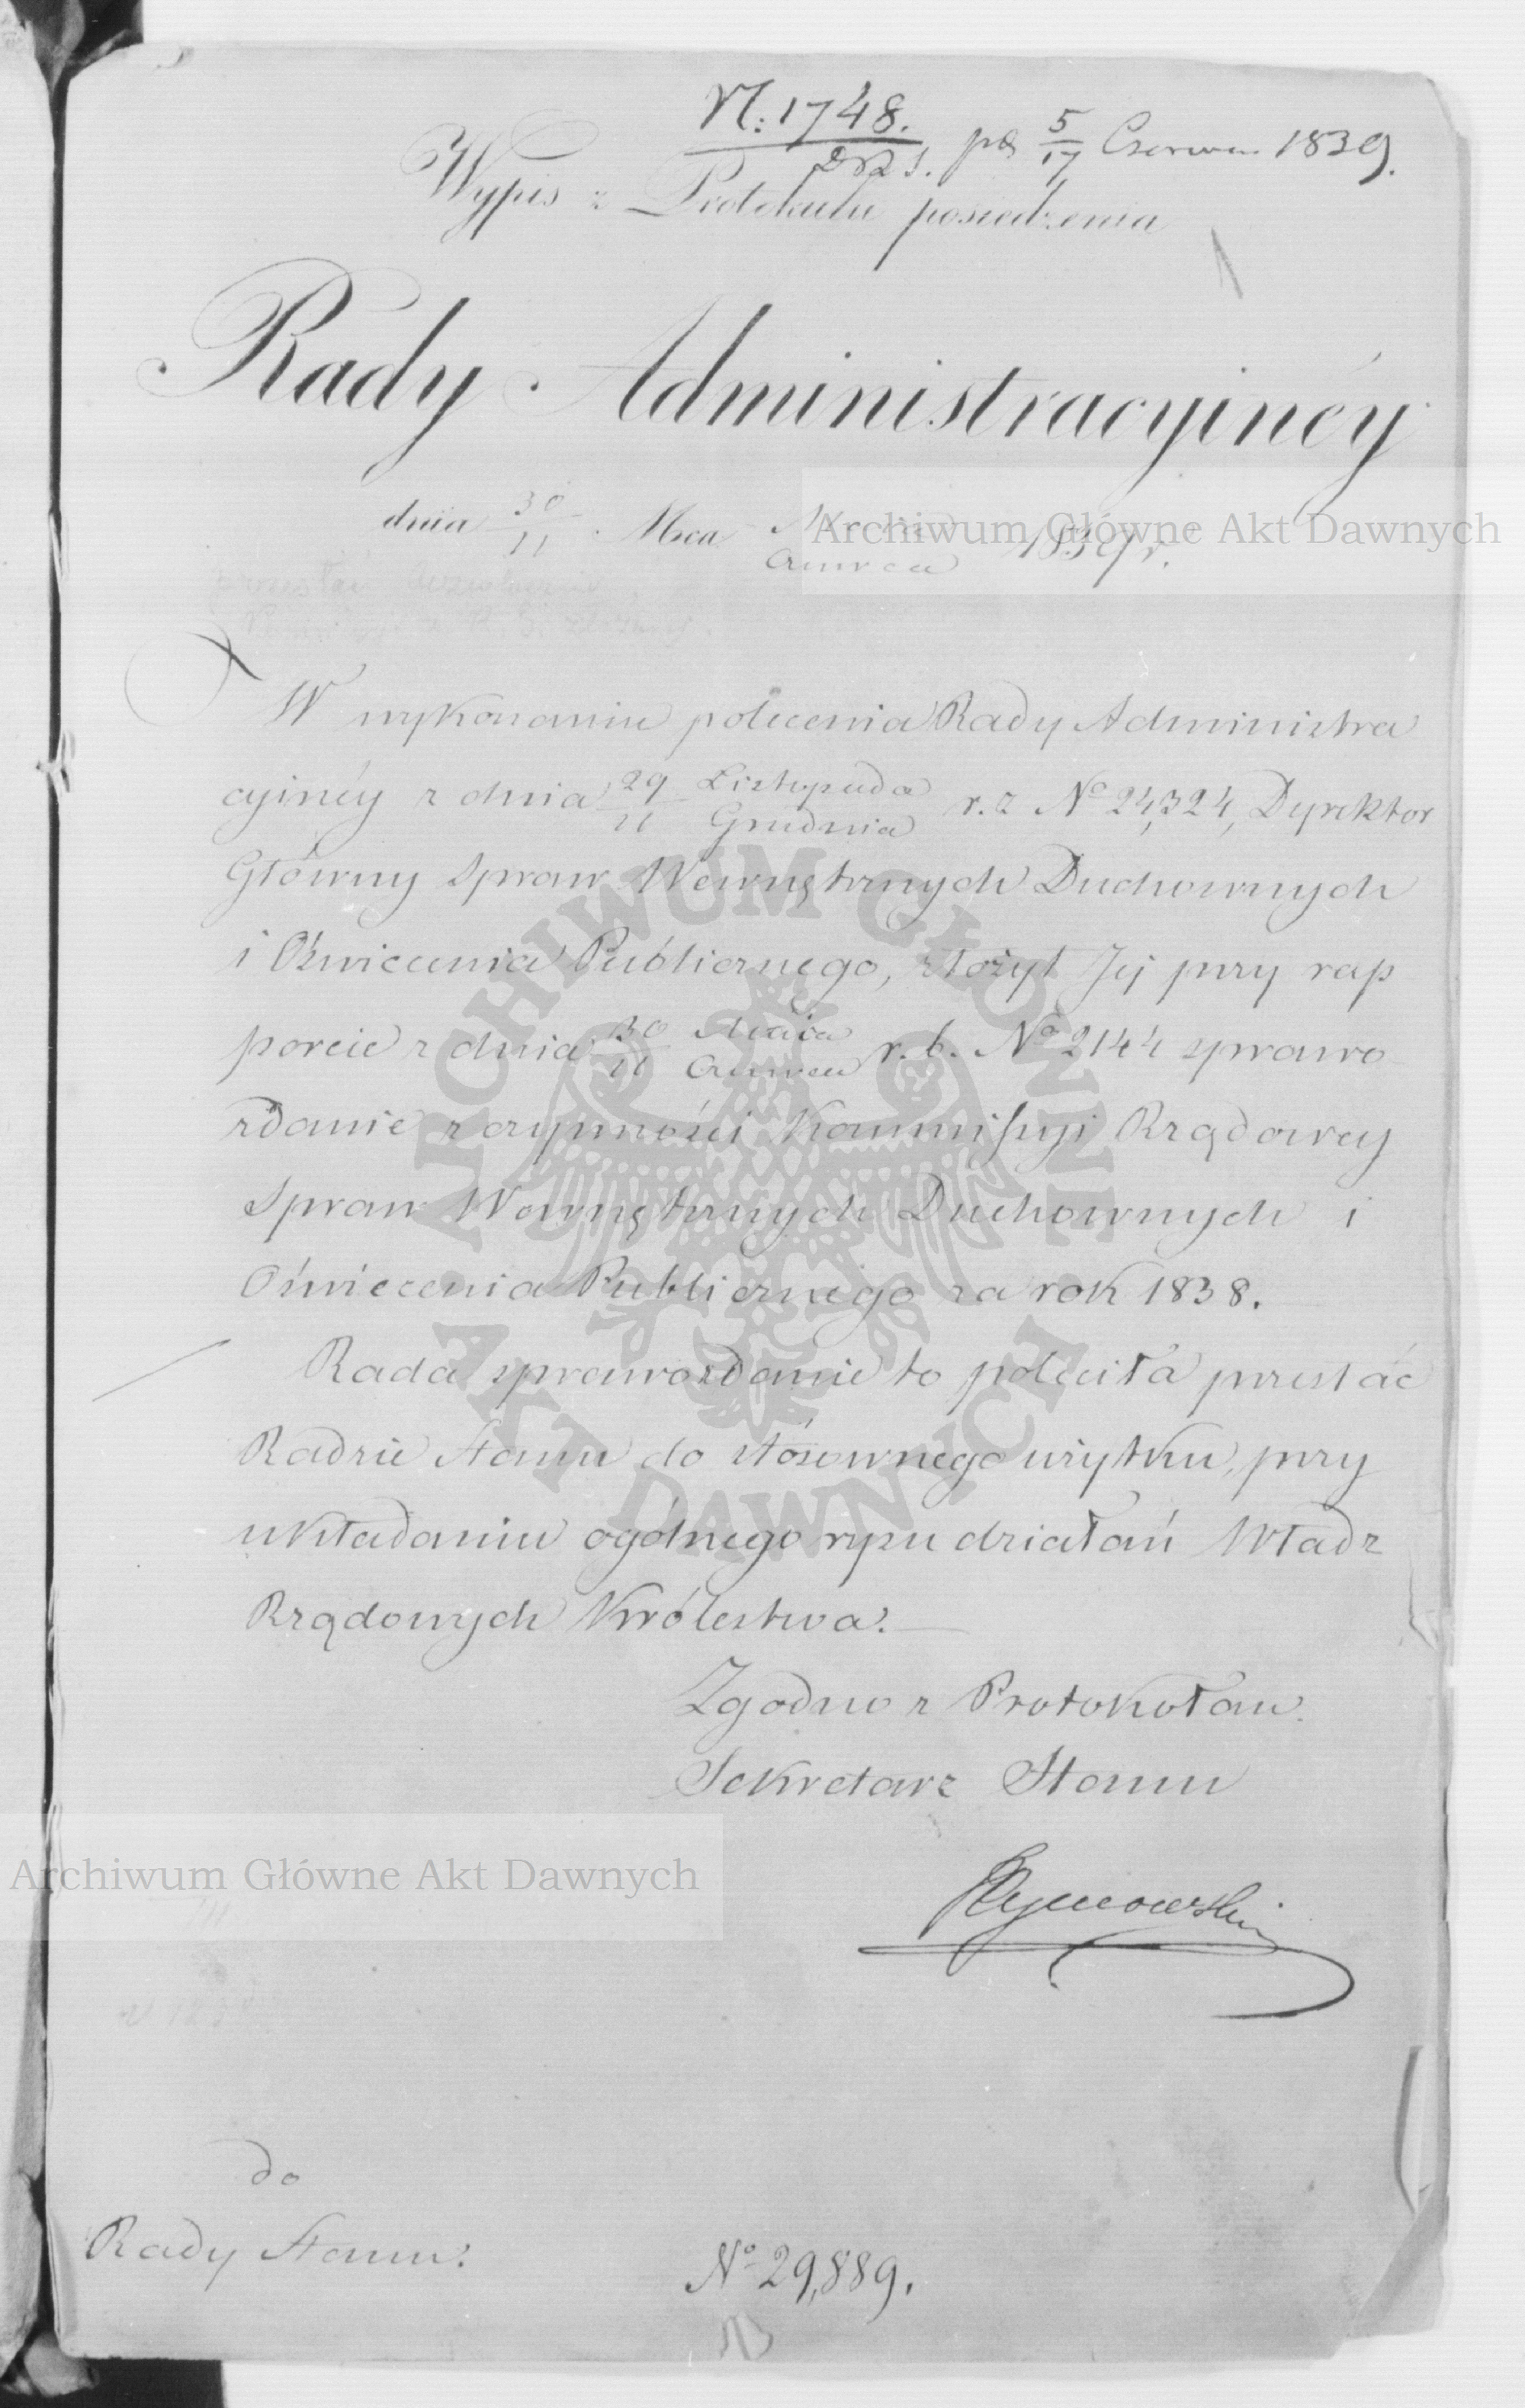 N: 1748.
DRS. ps 5/17 Czerwca 1839.
Wypis z Protokułu posiedzenia
Rady Administracyinéy
dnia 30/11 Mca Maia/Czerwca 1839 r.
W wykonaniu polecenia Rady Administra
cyinéy z dnia 29/11 Listopada/Grudnia r. z. No 24,324, Dyrektor
Główny Spraw Wewnętrznych Duchownych
i Oświecenia Publicznego, złożył Jej przy rap
porcie z dnia 30/11 Maia/Czerwca r. b. No 2144 sprawo
zdanie z czynności Kommissyi Rządowey
Spraw Wewnętrznych Duchownych i
Oświecenia Publicznego za rok 1838.
Rada sprawozdanie to poleciła przesłać
Radzie Stanu do stósownego użytku, przy
układaniu ogólnego rysu działań Władz
Rządowych Królestwa.
Zgodno z Protokołem
Sekretarz Stanu
do
Rady Stanu.
No 29,889.
Archiwum Główne Akt Dawnych
Archiwum Główne Akt Dawnych
ARCHIWUM GŁÓWNE
AKT DAWNYCH